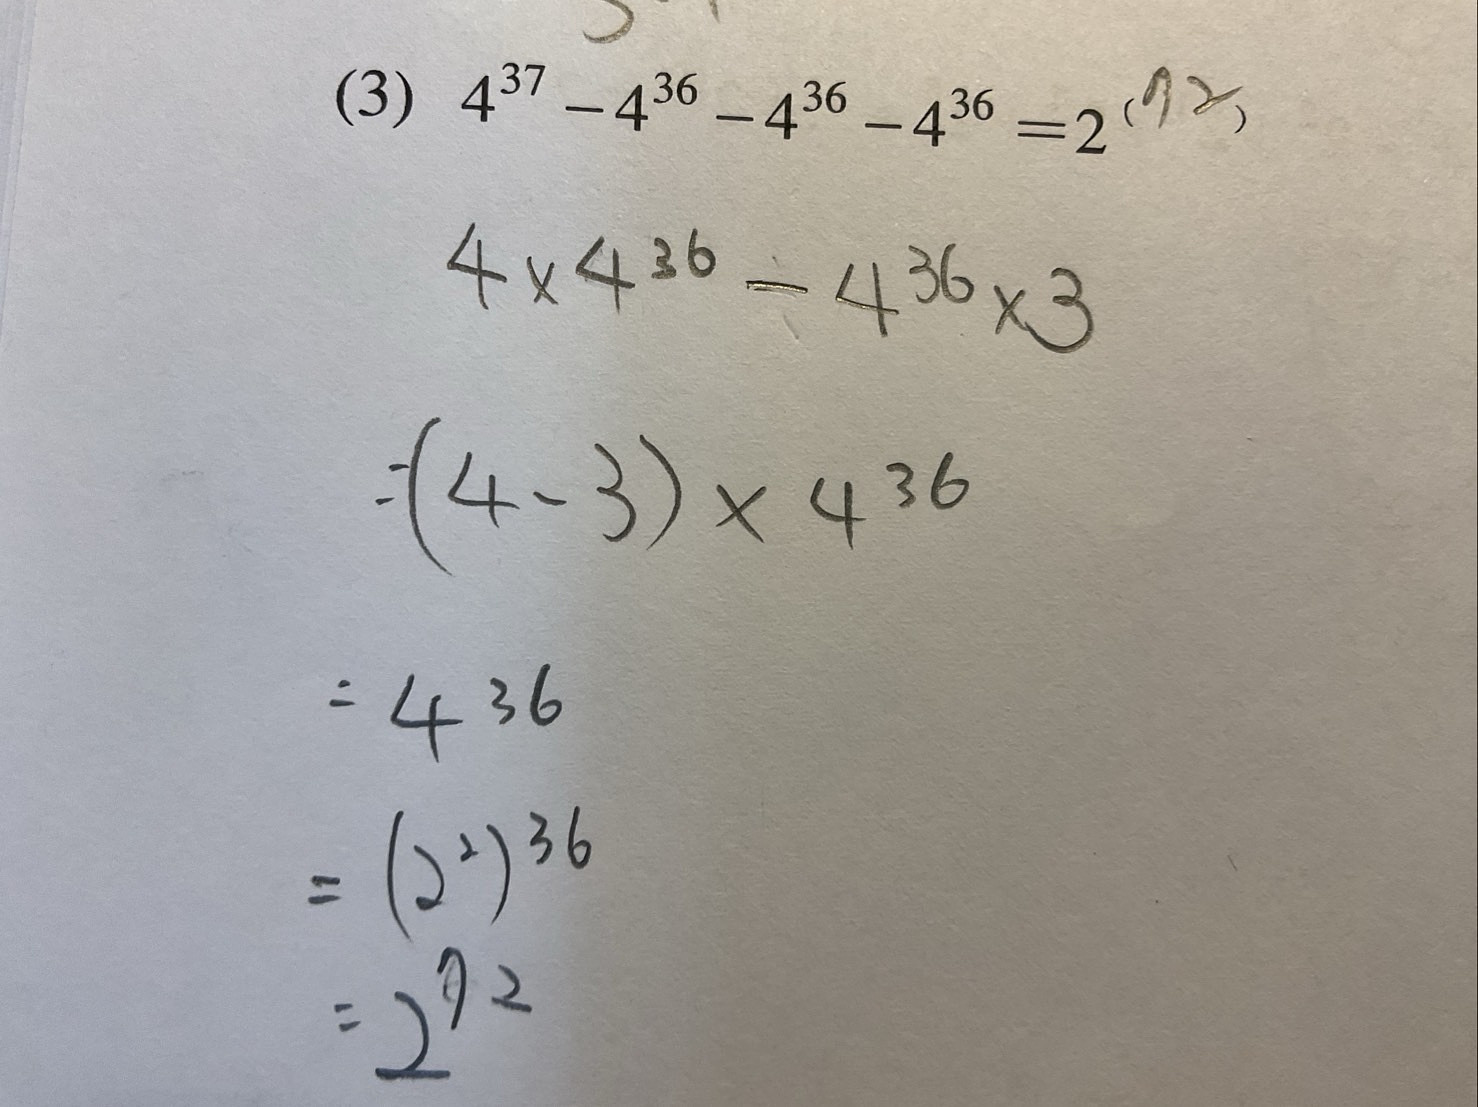 (3) 4³⁷ − 4³⁶ − 4³⁶ − 4³⁶ = 2⁽⁷²⁾
4 × 4³⁶ − 4³⁶ × 3
= (4 - 3) × 4³⁶
= 4³⁶
= (2²)³⁶
= 2⁷²